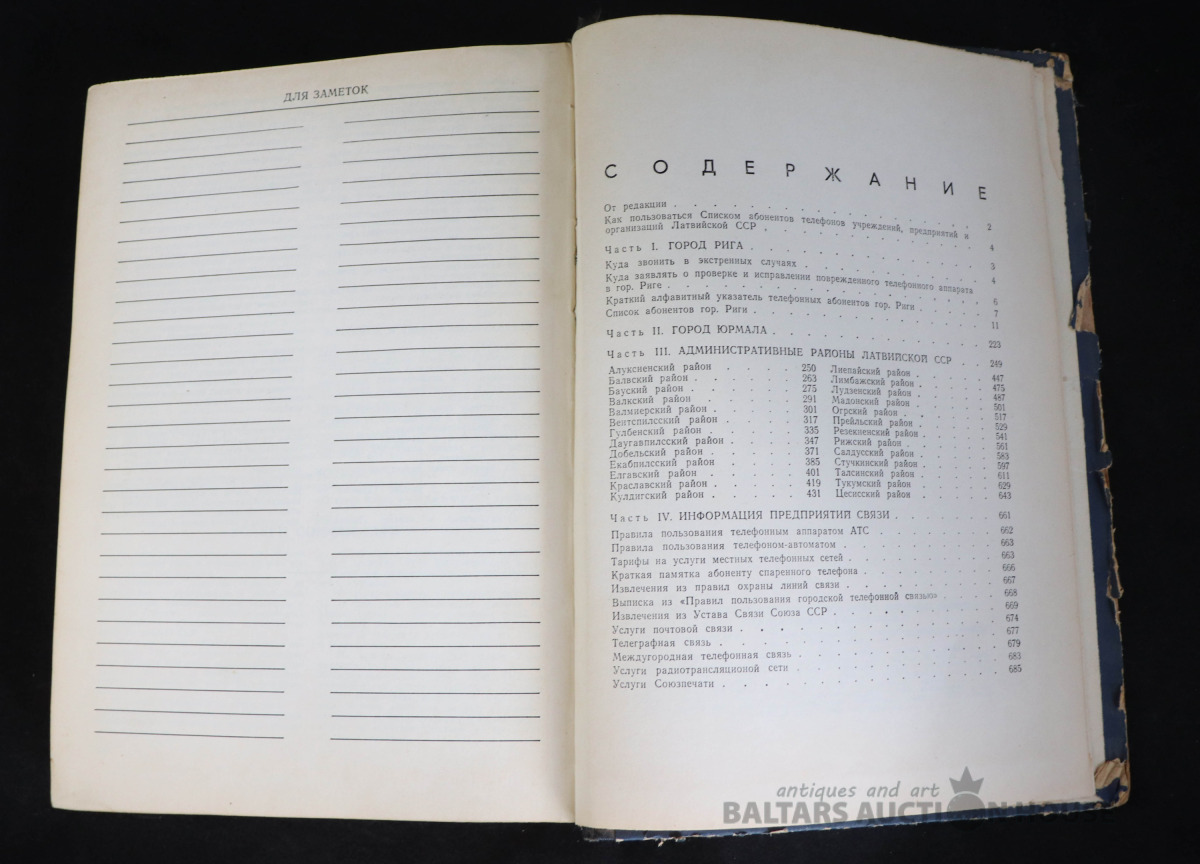 ДЛЯ ЗАМЕТОК
СОДЕРЖАНИЕ
От редакции . . . . . . . . . . 2
Как пользоваться Списком абонентов телефонов учреждений, предприятий и
организаций Латвийской ССР . . . . . . . . . . 4
Часть I. ГОРОД РИГА . . . . . . . . . . 3
Куда звонить в экстренных случаях . . . . . . . . . . 4
Куда заявлять о проверке и исправлении поврежденного телефонного аппарата
в гор. Риге . . . . . . . . . . 6
Краткий алфавитный указатель телефонных абонентов гор. Риги . . . . . 7
Список абонентов гор. Риги . . . . . . . . . . 11
Часть II. ГОРОД ЮРМАЛА . . . . . . . . . . 223
Часть III. АДМИНИСТРАТИВНЫЕ РАЙОНЫ ЛАТВИЙСКОЙ ССР . . 249
Алуксненский район . . . . 250 Лиепайский район . . . . 447
Балвский район . . . . 263 Лимбажский район . . . . 475
Бауский район . . . . 275 Лудзенский район . . . . 487
Валкский район . . . . 291 Мадонский район . . . . 501
Валмиерский район . . . . 301 Огрский район . . . . 517
Вентспилсский район . . . . 317 Прейльский район . . . . 529
Гулбенский район . . . . 335 Резекненский район . . . . 541
Даугавпилсский район . . . . 347 Рижский район . . . . 561
Добельский район . . . . 371 Салдусский район . . . . 583
Екабпилсский район . . . . 385 Стучкинский район . . . . 597
Елгавский район . . . . 401 Талсинский район . . . . 611
Краславский район . . . . 419 Тукумский район . . . . 629
Кулдигский район . . . . 431 Цесисский район . . . . 643
Часть IV. ИНФОРМАЦИЯ ПРЕДПРИЯТИЙ СВЯЗИ . . . . . . 661
Правила пользования телефонным аппаратом АТС . . . . . . 662
Правила пользования телефоном-автоматом . . . . . . . 663
Тарифы на услуги местных телефонных сетей . . . . . . . 663
Краткая памятка абоненту спаренного телефона . . . . . . 666
Извлечения из правил охраны линий связи . . . . . . . 667
Выписка из «Правил пользования городской телефонной связью» . . . . 668
Извлечения из Устава Связи Союза ССР . . . . . . . 669
Услуги почтовой связи . . . . . . . . . . 674
Телеграфная связь . . . . . . . . . . 677
Междугородная телефонная связь . . . . . . . . 679
Услуги радиотрансляционой сети . . . . . . . . 683
Услуги Союзпечати . . . . . . . . . . 685
antiques and art
BALTARS AUCTION HOUSE